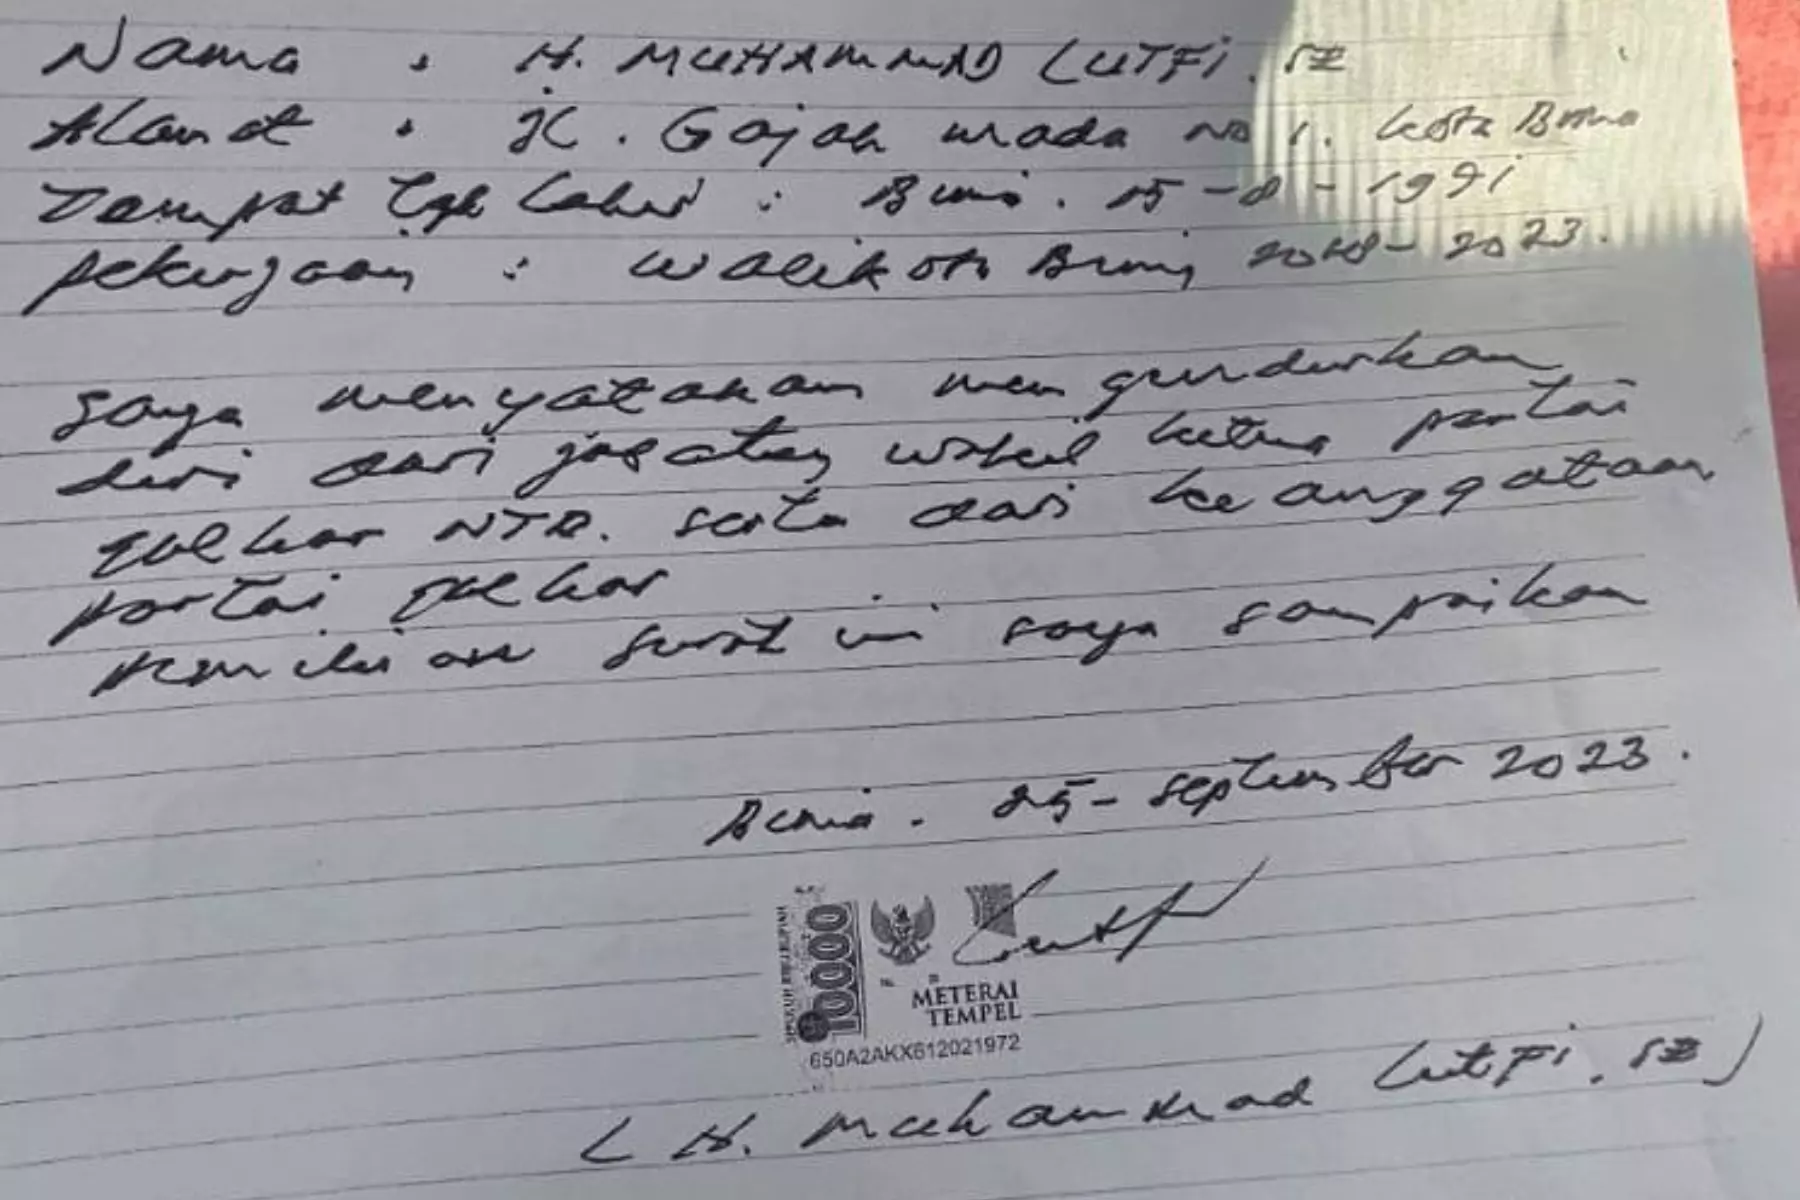 Nama : H. MUHAMMAD LUTFI. SE
Alamat : Jl. Gajah mada no 1. kota Bima
Tempat Tgl Lahir : Bima. 15-8-1971
pekerjaan : Walikota Bima 2018-2023.
saya menyatakan mengundurkan
diri dari jabatan wakil ketua partai
golkar NTB. serta dari keanggotaan
partai golkar
Demikian surat ini saya sampaikan
Bima. 25-september 2023.
SEPULUH RIBU RUPIAH
10000
METERAI
TEMPEL
650A2AKX612021972
( H. Muhammad Lutfi. SE )